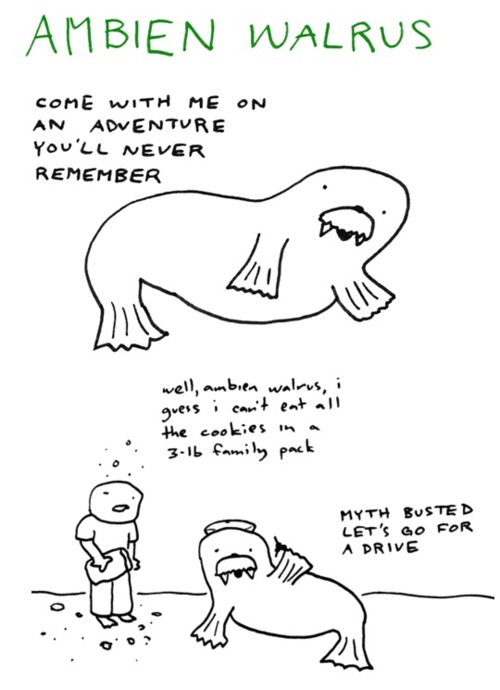 AMBIEN WALRUS
COME WITH ME ON
AN ADVENTURE
YOU'LL NEVER
REMEMBER
well, ambien walrus, i
guess i can't eat all
the cookies in a
3-lb family pack
MYTH BUSTED
LET'S GO FOR
A DRIVE